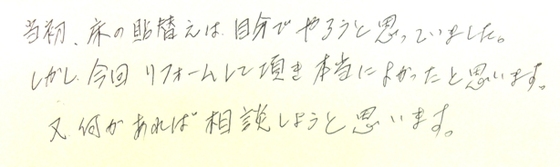 当初、床の貼替えは、自分でやろうと思っていました。
しかし、今回リフォームして頂き本当によかったと思います。
又何かあれば相談しようと思います。